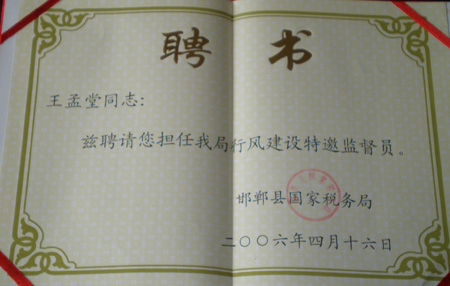 聘书
王孟堂同志：
兹聘请您担任我局行风建设特邀监督员。
邯郸县国家税务局
二〇〇六年四月十六日